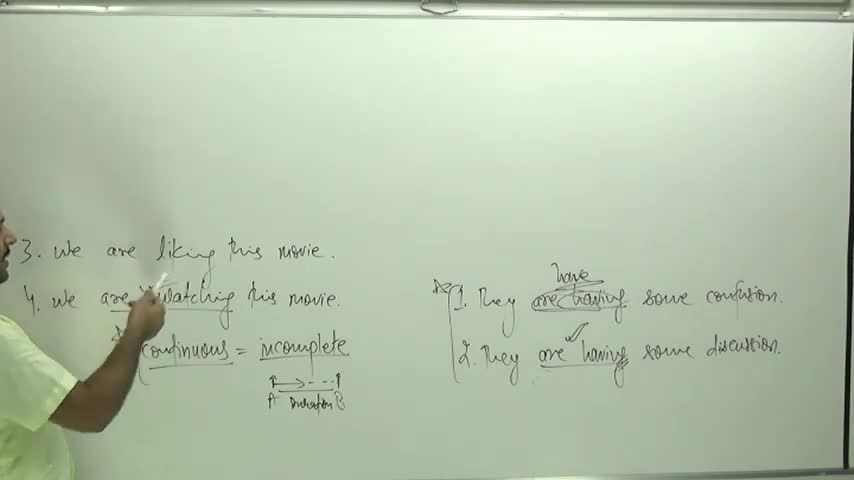 3. We are liking this movie.
4. We are watching this movie.
continuous = incomplete
A Duration B
have
1. They are having some confusion.
2. They are having some discussion.